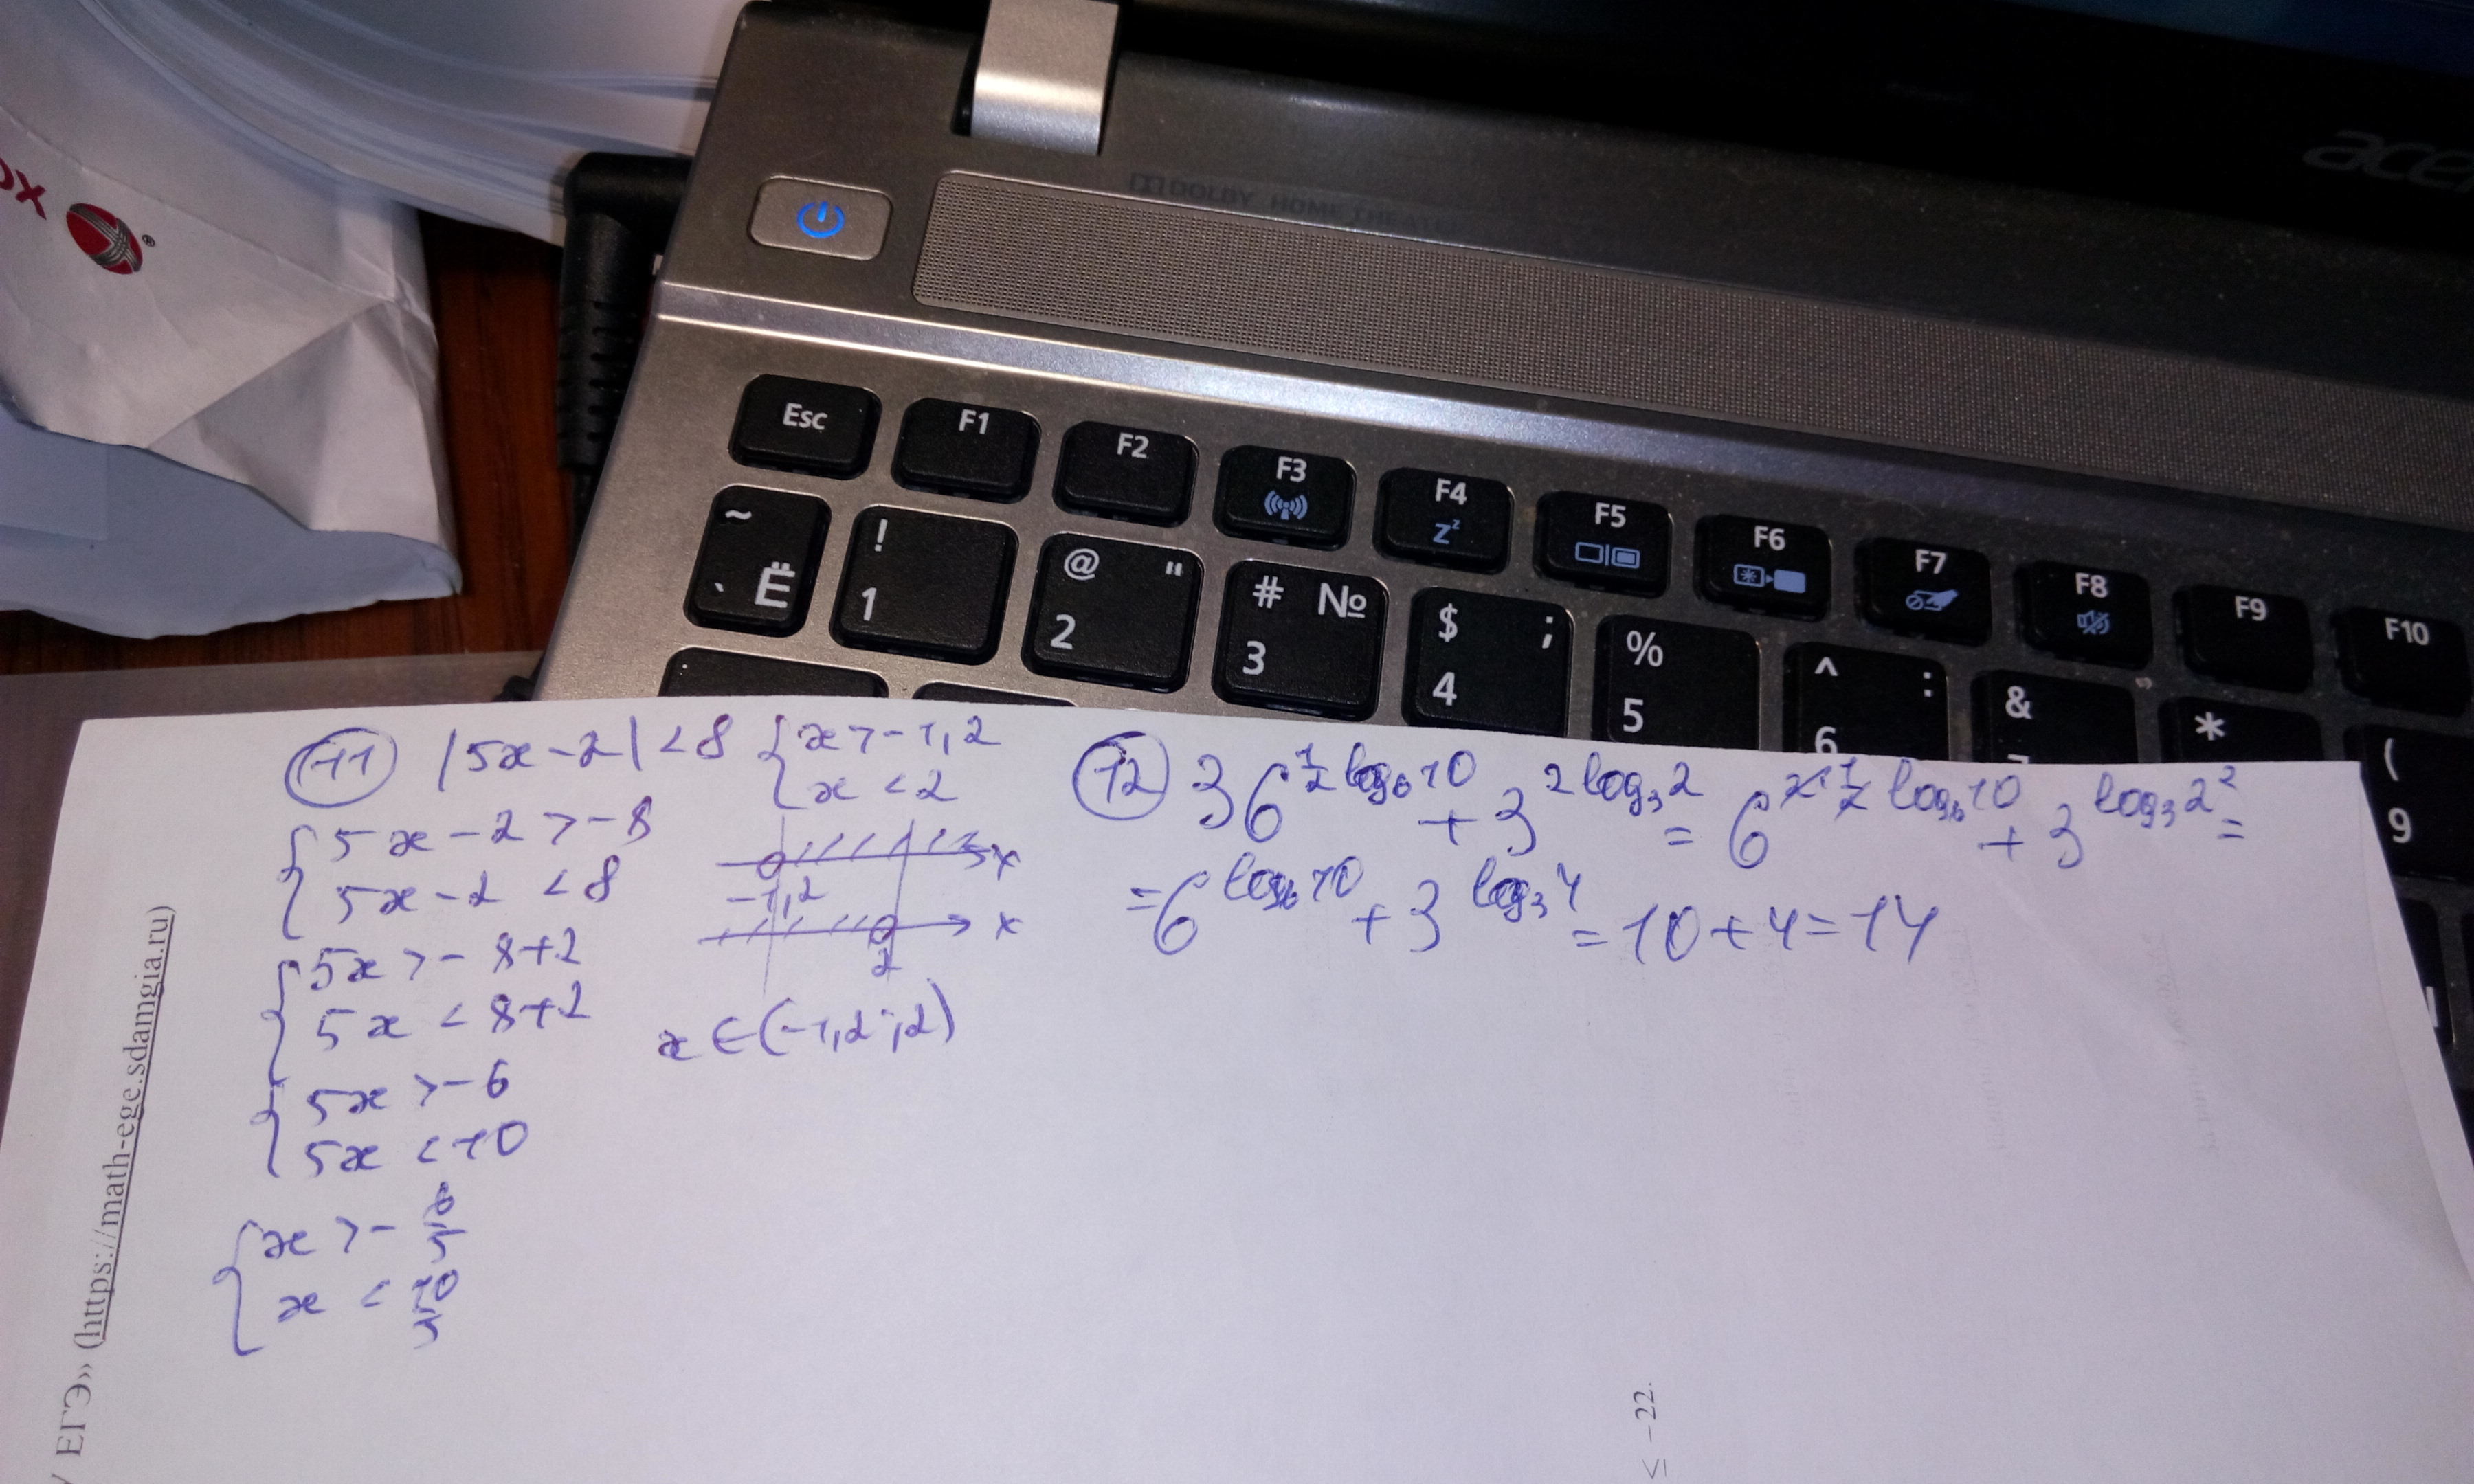 ox
®
acer
DOLBY HOME THEATER
Esc F1 F2 F3 F4 Zz F5 F6 F7 F8 F9 F10
~ ` Ё
! 1
@ " 2
# № 3
$ ; 4
% 5
^ : 6
& 7
*
( 9
⑪ |5x-2|<8
{5x-2>-8
{5x-2<8
{5x>-8+2
{5x<8+2
{5x>-6
{5x<10
{x>-6/5
{x<10/5
{x>-1,2
{x<2
x
-1,2
x
2
x∈(-1,2;2)
⑫ 36^(1/2 log₆10)+3^(2log₃2)=6^(2·1/2 log₆10)+3^(log₃2²)=
=6^(log₆10)+3^(log₃4)=10+4=14
ЕГЭ» (https://math-ege.sdamgia.ru)
≤ −22.